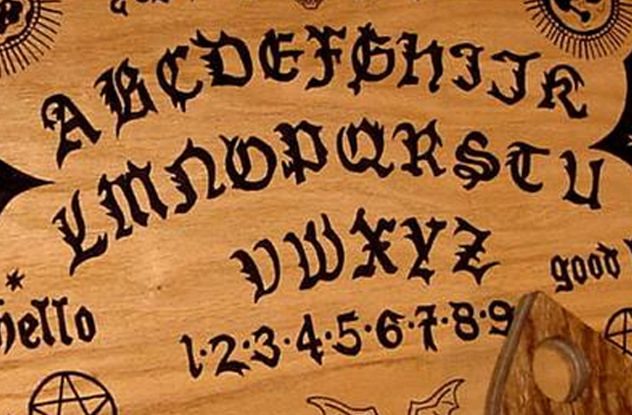 ABCDEFGHIJK
LMNOPQRSTU
VWXYZ
hello
good
1·2·3·4·5·6·7·8·9